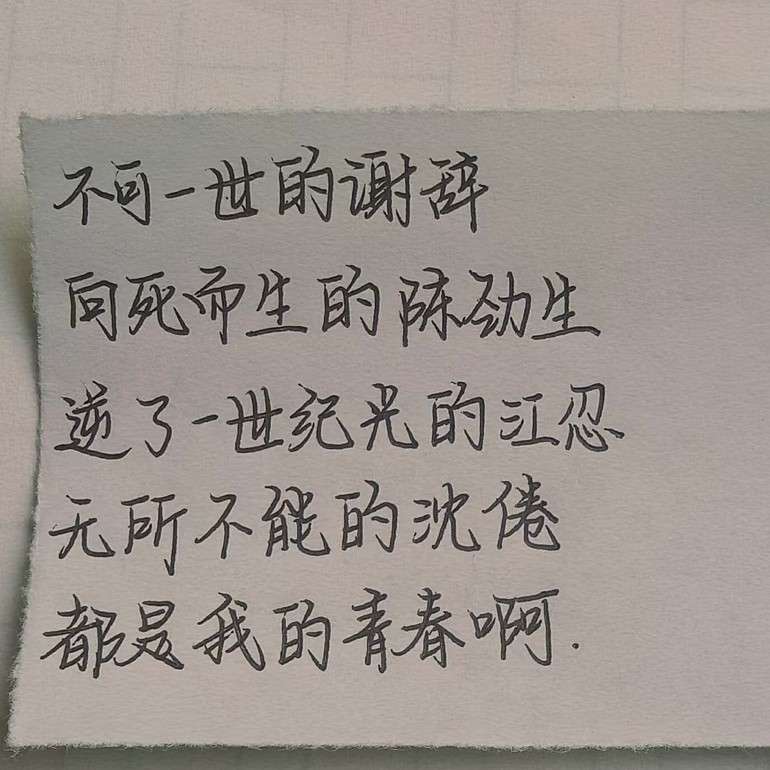 不可一世的谢辞
向死而生的陈劲生
逆了一世纪光的江忍
无所不能的沈倦
都是我的青春啊.